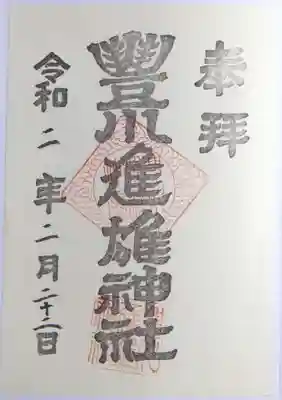 奉拝
豐川進雄神社
令和二年二月二十二日